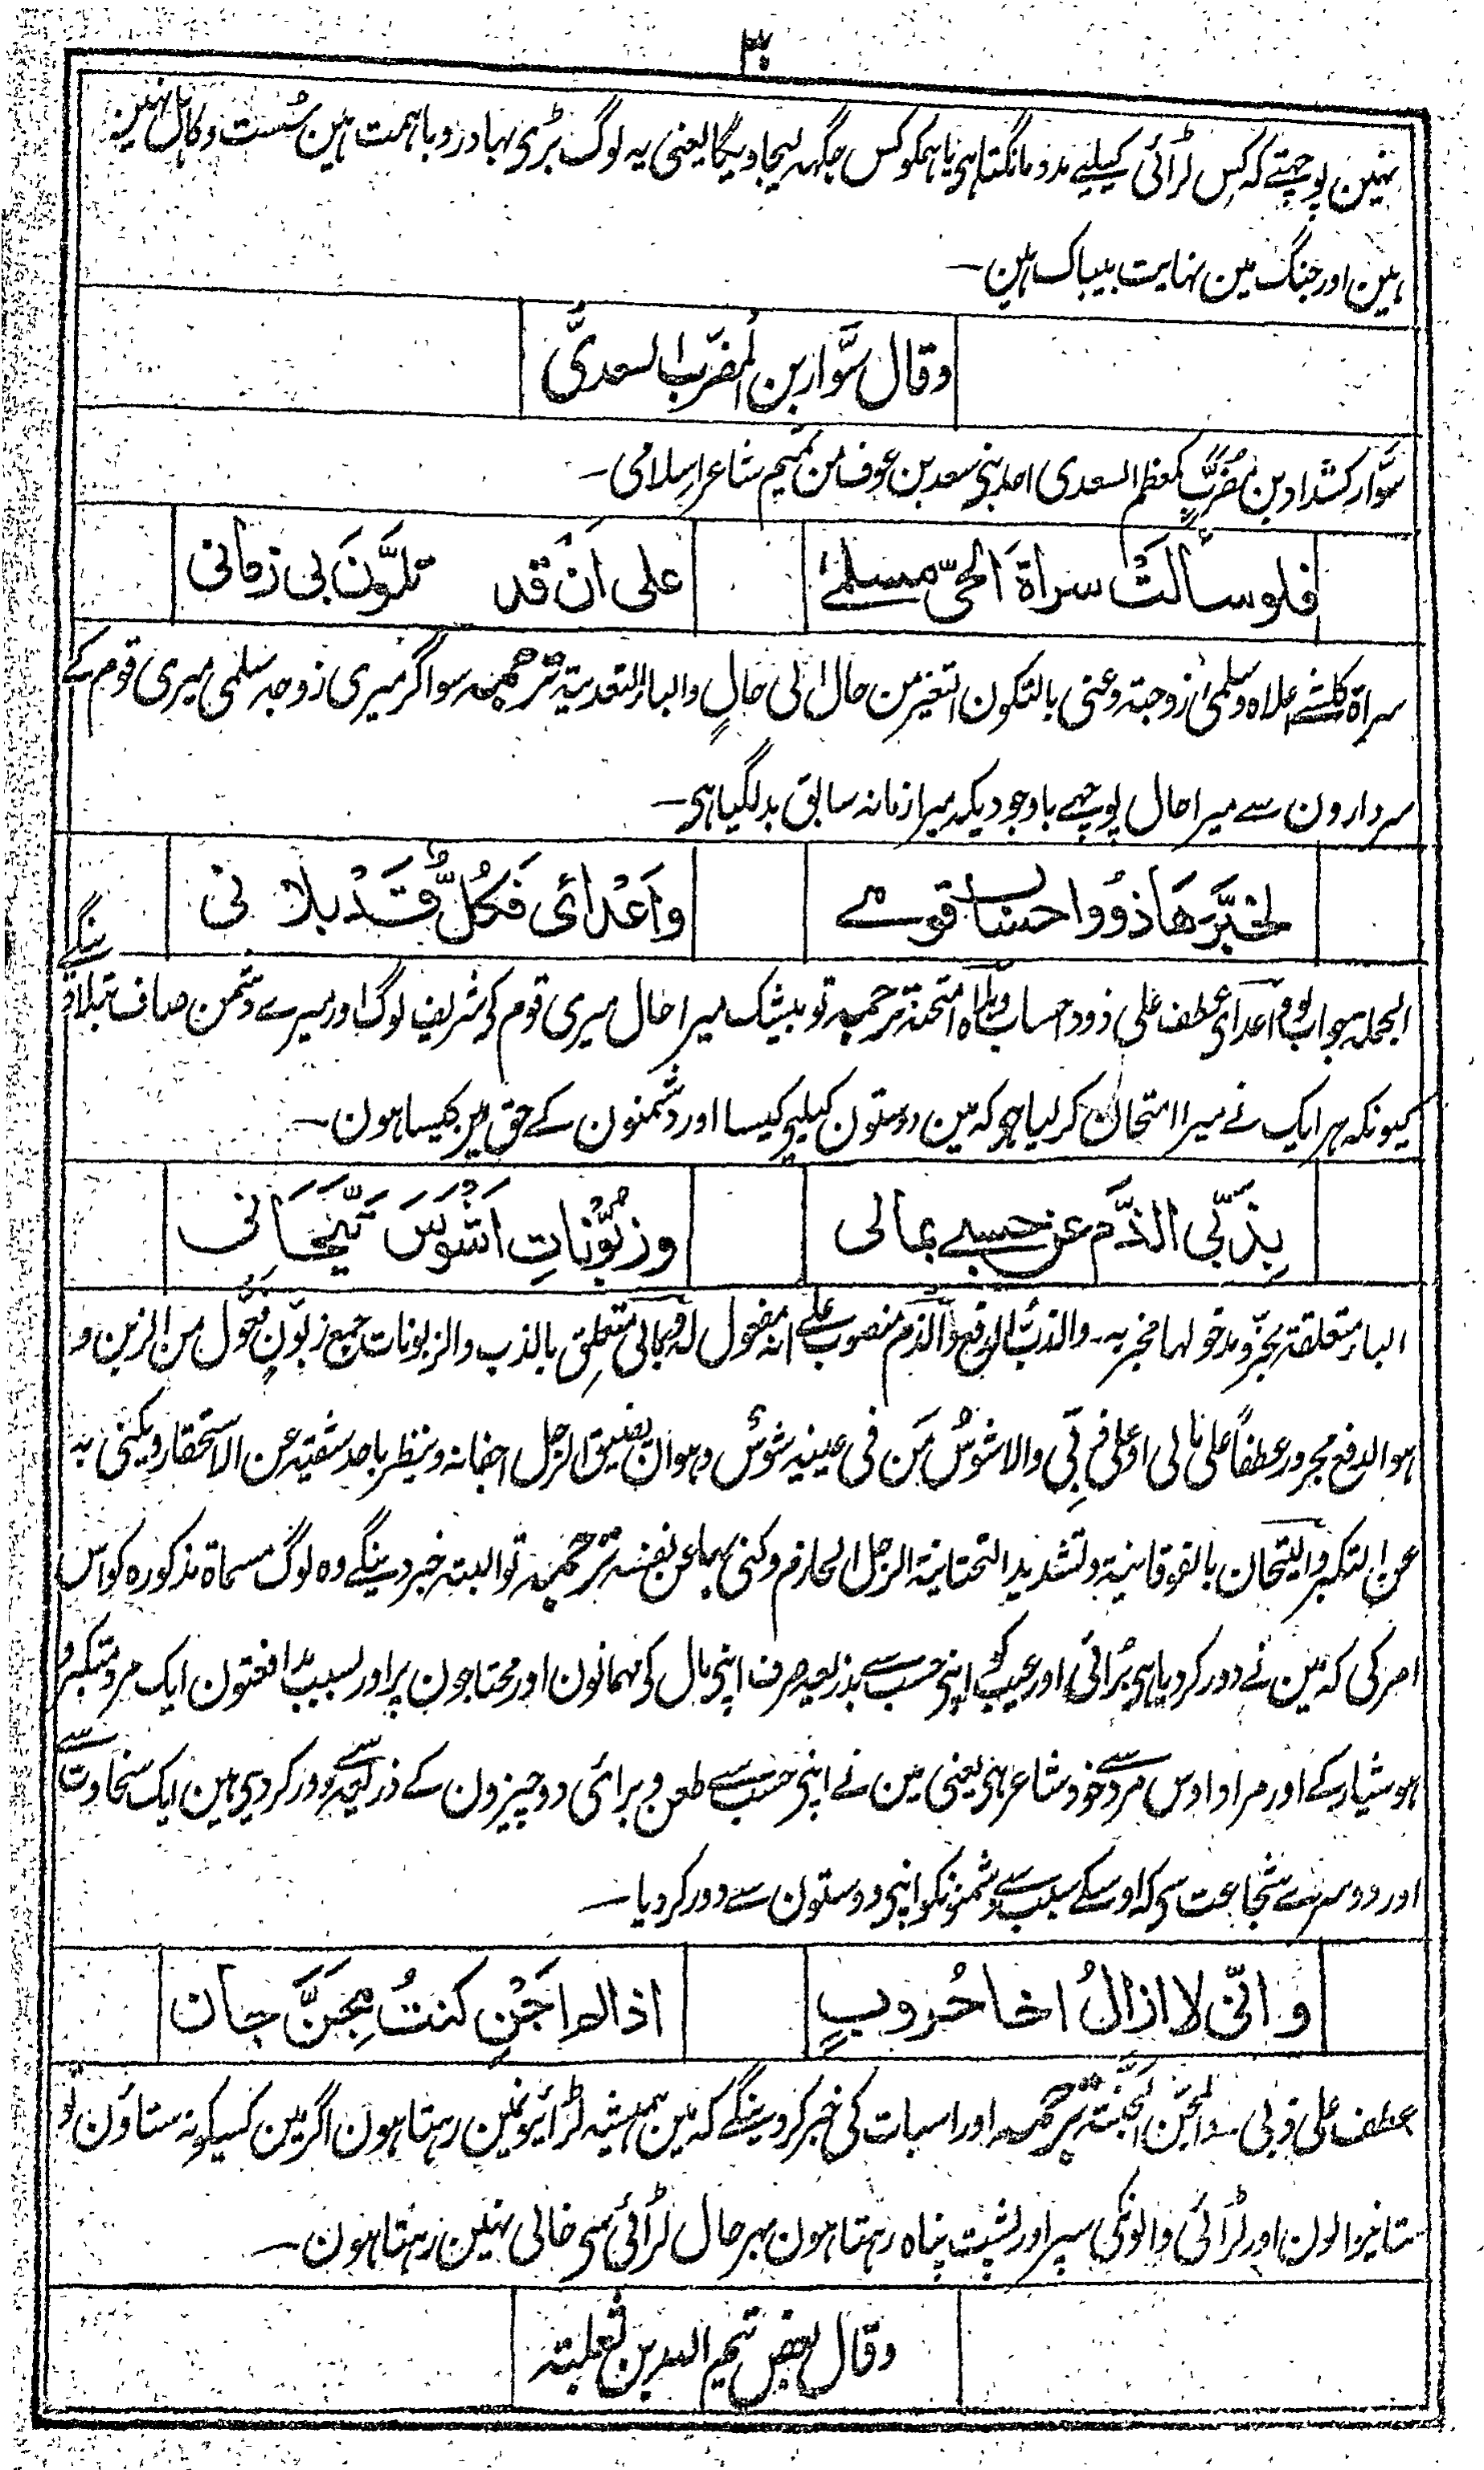 ۳۰
نہین پوچہتے کہ کس لڑائی کیلیے مدد مانگتا ہی یا ہمکو کس جگہہ لیجاویگا یعنی یہ لوگ بڑی بہادر و باہمت ہین سُست و کاہل نہین
ہین اور جنگ مین نہایت بیباک ہین ۔
وقال سَوَّار بن المُضَرَّب السعدیَّ
سَوَّار کشداد بن مُضَرَّبٍ کمعظم السعدی احد بنی سعد بن عوف من تمیم شاعر اسلامی ۔
فلو سألتْ سراةَ الحیّ سلمےٰ علی اَنْ قد تلوَّنَ بی زمانی
سراة کلشے اعلاہ و سلمیٰ زوجتہ و عنی بالتکون التغیر من حال الی حالٍ والباء للتعدیة ترجمہ سو اگر میری زوجہ سلمی میری قوم کے
سردارون سے میرا حال پوچہے باوجودیکہ میرا زمانہ سابق بدلگیا ہی ۔
لخبَّرَهَا ذوُوا احساب قومے وَاَعْدائی فَکُلٌّ قَدْ بلانی
الجملہ جواب لو و اعدای عطف علی ذوو احساب و بلاہ امتحنہ ترجمہ تو بیشک میرا حال میری قوم کی شریف لوگ اور میرے دشمن صاف بتلاو ینگے
کیونکہ ہر ایک نے میرا امتحان کر لیا ہی کہ مین دوستون کیلیے کیسا اور دشمنون کے حق مین کیسا ہون ۔
بِذَبّی الذَّم عن حسبے بمالی وزَبُّوناتِ اَشْوَسَ تَیَّحَانی
الباء متعلقة بخبّر و مدخولہا مخبر بہ ۔ والذبُّ الدفع والذم منصوب علے انہ مفعول لہ و بمالی متعلق بالذب والزبونات جمع زبّونٍ فعّول من الزبن و
ہو الدفع مجرور عطفاً علی مالی او علی ذبّی والاشوسُ مَن فی عینیہ شَوَس و ہو ان یضیق الرجل اجفانہ و ینظر باحد شقیہ عن الاستحقار و یکنی بہ
عن التکبر والتیحان بالفوقانیة و تشدید التحتانیة الرجل الحازم و کنی بہما عن نفسہ ترجمہ تو البتہ خبر دینگے وہ لوگ مسماة مذکورہ کو اس
امر کی کہ مین نے دور کر دیا ہی بُرائی اور عیب کو اپنی حسب سے بذریعہ صرف اپنی مال کی مہمانون اور محتاجون پر اور بسبب مدافعتون ایک مرد متکبر و
ہوشیار کے اور مراد اوس مرد سے خود شاعر ہی یعنی مین نے اپنی حسب سے طعن و برائی دو چیزون کے ذریعہ سے دور کردی ہین ایک سخاوت سے
اور دوسرے شجاعت سی کہ اوسکے سبب سے دشمنونکو اپنی دوستون سے دور کر دیا ۔
وانّی لا ازالُ اخا حُروبٍ اذا لم اَجْنِ کنتُ مِجَنَّ جان
عطف علی ذبی ۔ والمجن الجنّة ترجمہ اور اسبات کی خبر کر دینگے کہ مین ہمیشہ لڑائیونمین رہتا ہون اگر مین کسیکو نہ ستاؤن تو
ستانیوالون اور لڑائی والونکی سپر اور پشت پناہ رہتا ہون بہر حال لڑائی سی خالی نہین رہتا ہون ۔
وقال بعض تیم اللہ بن ثعلبتہ